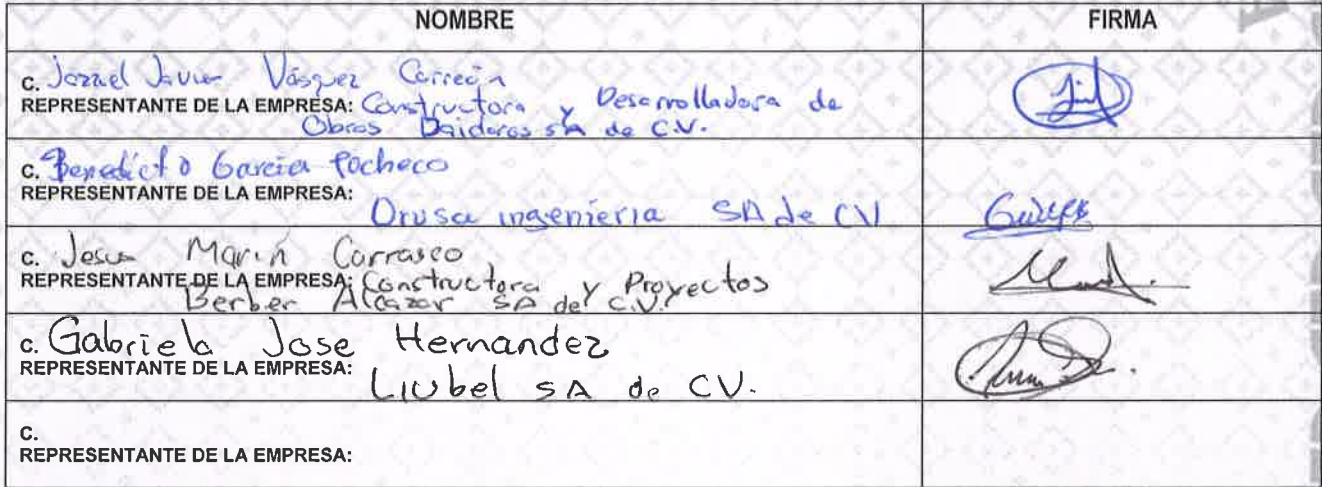 NOMBRE FIRMA
C. Javier Vásquez Carreón
REPRESENTANTE DE LA EMPRESA: Constructora y Desarrolladora de
Obras Daidaros SA de C.V.
C. Benedicto Garcia Pacheco
REPRESENTANTE DE LA EMPRESA:
Orusa ingenieria SA de CV
C. Jesus Marin Carrasco
REPRESENTANTE DE LA EMPRESA: Constructora y Proyectos
Berber Alcazar SA de C.V.
C. Gabriela Jose Hernandez
REPRESENTANTE DE LA EMPRESA:
Liubel SA de CV.
C.
REPRESENTANTE DE LA EMPRESA: